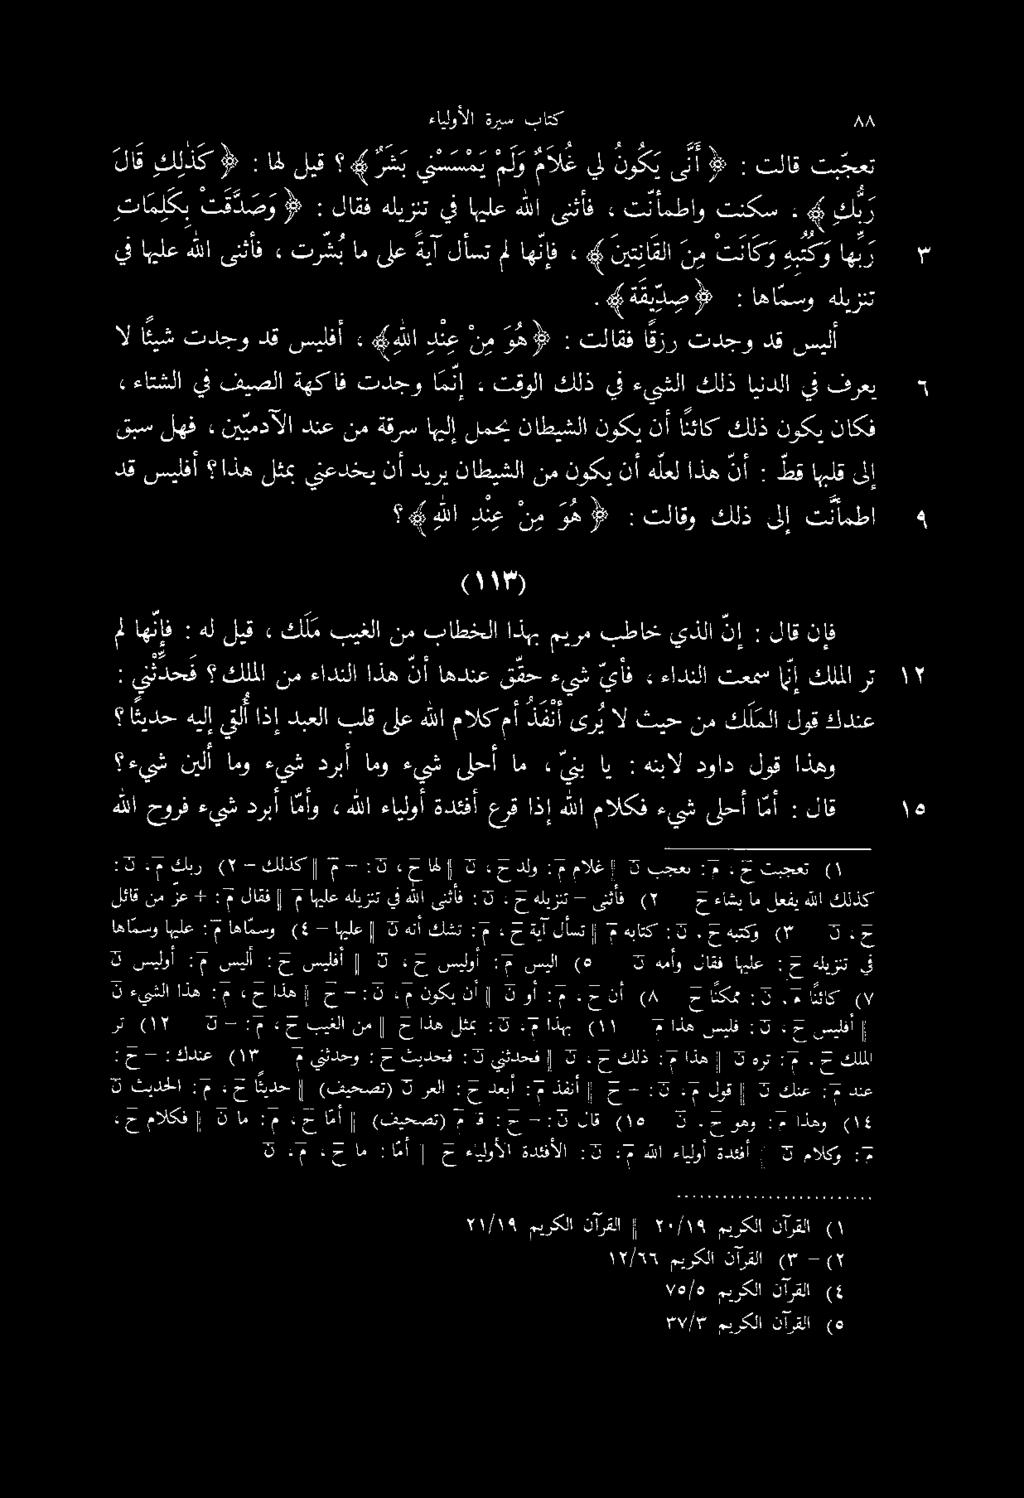 ٨٨ كتاب سيرة الأولياء
تعجّبت قالت : ﴿ أَنَّى يَكُونُ لِي غُلَامٌ وَلَمْ يَمْسَسْنِي بَشَرٌ ﴾ ؟ قيل لها : ﴿ كَذٰلِكِ قَالَ
رَبُّكِ ﴾ ، سكنت واطمأنّت ، فأثنى الله عليها في تنزيله فقال : ﴿ وَصَدَّقَتْ بِكَلِمَاتِ
٣ رَبِّها وَكُتُبِهِ وَكَانَتْ مِنَ القَانِتينَ ﴾ ، فإنّها لم تسأل آيةً على ما بُشّرت ، فأثنى الله عليها في
تنزيله وسمّاها : ﴿ صِدِّيقَة ﴾ .
أليس قد وجدت رزقًا فقالت : ﴿ هُوَ مِنْ عِنْدِ اللهِ ﴾ ، أفليس قد وجدت شيئًا لا
٦ يعرف في الدنيا ذلك الشيء في ذلك الوقت ، إنّما وجدت فاكهة الصيف في الشتاء ،
فكان يكون ذلك كائنًا أن يكون الشيطان يحمل إليها سرقة من عند الآدميّين ، فهل سبق
إلى قلبها قطّ : أنّ هذا لعلّه أن يكون من الشيطان يريد أن يخدعني بمثل هذا ؟ أفليس قد
٩ اطمأنّت إلى ذلك وقالت : ﴿ هُوَ مِنْ عِنْدِ اللهِ ﴾ ؟
(١١٣)
فإن قال : إنّ الذي خاطب مريم بهذا الخطاب من الغيب مَلَك ، قيل له : فإنّها لم
١٢ تر الملك إنّما سمعت النداء ، فأيّ شيء حقّق عندها أنّ هذا النداء من الملك ؟ فَحَدِّثْني :
عندك قول المَلَك من حيث لا يُرى أَنْفَذُ أم كلام الله على قلب العبد إذا أُلقي إليه حديثًا ؟
وهذا قول داود لابنه : يا بنيّ ، ما أحلى شيء وما أبرد شيء وما ألين شيء ؟
١٥ قال : أمّا أحلى شيء فكلام الله إذا قرع أفئدة أولياء الله ، وأمّا أبرد شيء فروح الله
١) تعجبت ح ، م : تعجب ن ‖ غلام م : ولد ح ، ن ‖ لها ح ، ن : - م ‖ كذلك - ٢) ربك م ، ن :
كذلك الله يفعل ما يشاء ح ٢) فأثنى - تنزيله ح ، ن : فأثنى الله في تنزيله عليها م ‖ فقال م : + عزّ من قائل
ح ، ن ٣) وكتبه ح ، ن : كتابه م ‖ تسأل آية ح ، م : تشك أنه ن ‖ عليها - ٤) وسمّاها م : عليها وسمّاها
في تنزيله ح : عليها فقال وأمه ن ٥) اليس م : أوليس ح ، ن ‖ أفليس ح : أليس م : أوليس ن
٧) كائنًا م ، ن : ممكنًا ح ٨) أن ح ، م : أو ن ‖ أن يكون م ، ن : - ح ‖ هذا ح ، م : هذا الشيء ن
‖ أفليس ح ، ن : فليس هذا م ١١) بهذا م ، ن : بمثل هذا ح ‖ من الغيب ح ، م : - ن ١٢) تر
الملك ح ، م : تره ن ‖ هذا م : ذلك ح ، ن ‖ فحدثني ن : فحديث ح : وحدثني م ١٣) عندك : - ح :
عند م : عنك ن ‖ قول م ، ن : - ح ‖ أنفذ م : أبعد ح : العر ن (تصحيف) ‖ حديثًا ح ، م : الحديث ن
١٤) وهذا م : وهو ح ، ن ١٥) قال ن : - ح : ق م (تصحيف) ‖ أمّا ح ، م : ما ن ‖ فكلام ح ،
م : وكلام ن ‖ أفئدة أولياء الله م ، ن : الأفئدة الأولياء ح ‖ أمّا : ما ح ، م ، ن
١) القرآن الكريم ٢٠/١٩ ‖ القرآن الكريم ٢١/١٩
٢) - ٣) القرآن الكريم ١٢/٦٦
٤) القرآن الكريم ٧٥/٥
٥) القرآن الكريم ٣٧/٣